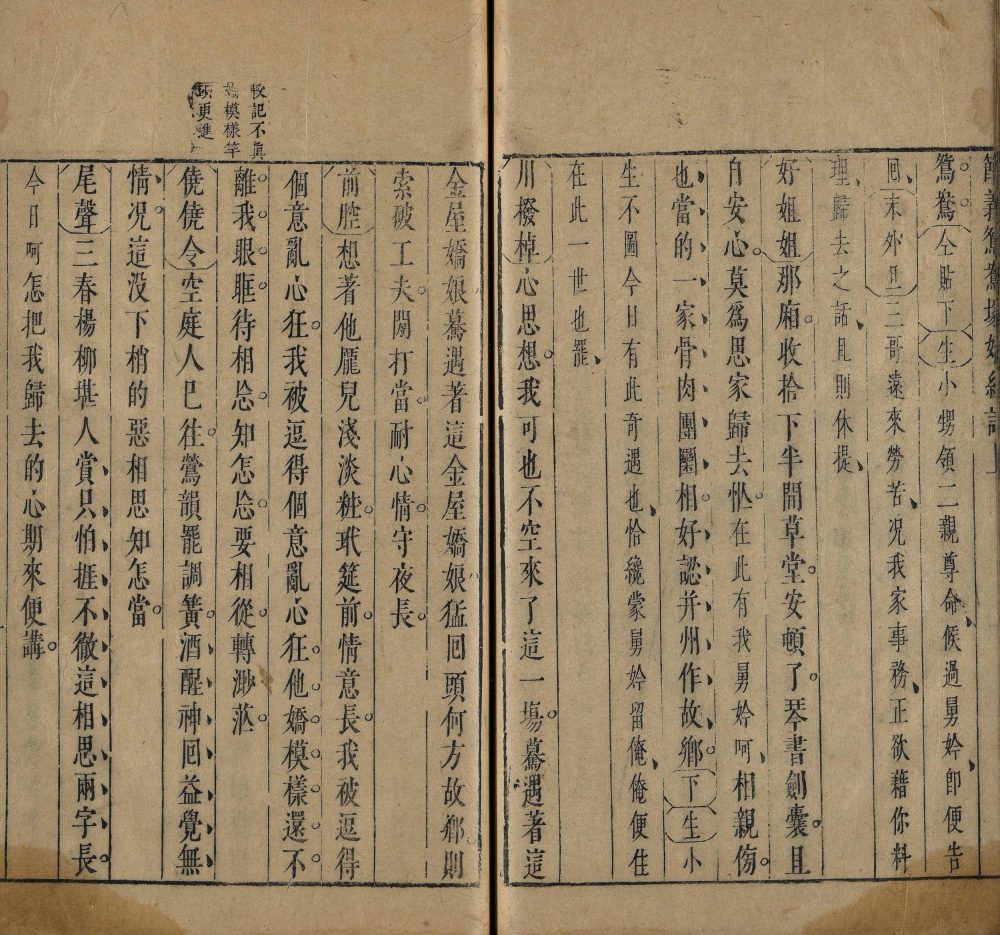 節義鴛鴦塚嬌紅記上
鴛鴦仝貼下生小甥領二親尊命候過舅妗卽便告
回末外旦三哥遠來勞苦况我家事務正欲藉你料
理歸去之話且則休提
好姐姐那廂收拾下半間草堂安頓了琴書劍囊且
自安心莫爲思家歸去忙在此有我舅妗呵相親傍
也當的一家骨肉團圞相好認并州作故鄉下生小
生不圖今日有此奇遇也恰纔蒙舅妗留俺俺便住
在此一世也罷
川撥棹心思想我可也不空來了這一塲驀遇著這
金屋嬌娘驀遇著這金屋嬌娘猛回頭何方故鄉則
索破工夫閒打當耐心情守夜長
前腔想著他龎兒淺淡粧玳筵前情意長我被逗得
個意亂心狂我被逗得個意亂心狂他嬌模樣還不
離我眼眶待相忘知怎忘要相從轉渺茫
記不眞
模樣竿
頭更進
僥僥令空庭人已往鶯韻罷調簧酒醒神回益覺無
情况這没下梢的惡相思知怎當
尾聲三春楊柳堪人賞只怕捱不徹這相思兩字長
今日呵怎把我歸去的心期來便講